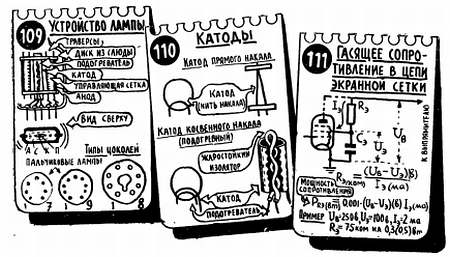 109 УСТРОЙСТВО ЛАМПЫ
ТРАВЕРСЫ
ДИСК ИЗ СЛЮДЫ
ПОДОГРЕВАТЕЛЬ
КАТОД
УПРАВЛЯЮЩАЯ СЕТКА
АНОД
ВИД СВЕРХУ
А С К П
ТИПЫ ЦОКОЛЕЙ
ПАЛЬЧИКОВЫЕ ЛАМПЫ
1 7 1 9 1 8
110 КАТОДЫ
КАТОД ПРЯМОГО НАКАЛА
КАТОД
(НИТЬ НАКАЛА)
КАТОД КОСВЕННОГО НАКАЛА
(ПОДОГРЕВНЫЙ)
ЖАРОСТОЙКИЙ
ИЗОЛЯТОР
КАТОД
ПОДОГРЕВАТЕЛЬ
111 ГАСЯЩЕЕ СОПРО-
ТИВЛЕНИЕ В ЦЕПИ
ЭКРАННОЙ СЕТКИ
Iэ Rэ
Cэ Uэ Uв
К ВЫПРЯМИТЕЛЮ
Rэ(ком) = (Uв-Uэ)(В) / Iэ(ма)
МОЩНОСТЬ
СОПРОТИВЛЕНИЯ
PRэ(вт) = 0,001·(Uв-Uэ)(В) Iэ(ма)
ПРИМЕР Uв=250в, Uэ=100в, Iэ=2 ма
Rэ=75 ком на 0,3(0,5) вт